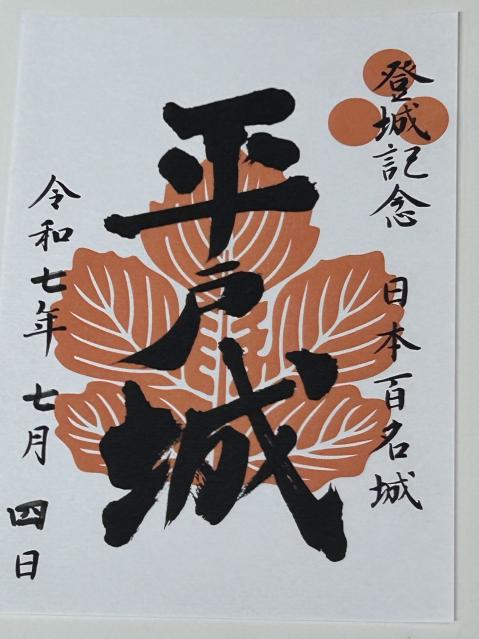 登城記念
日本百名城
平戸城
令和七年七月四日